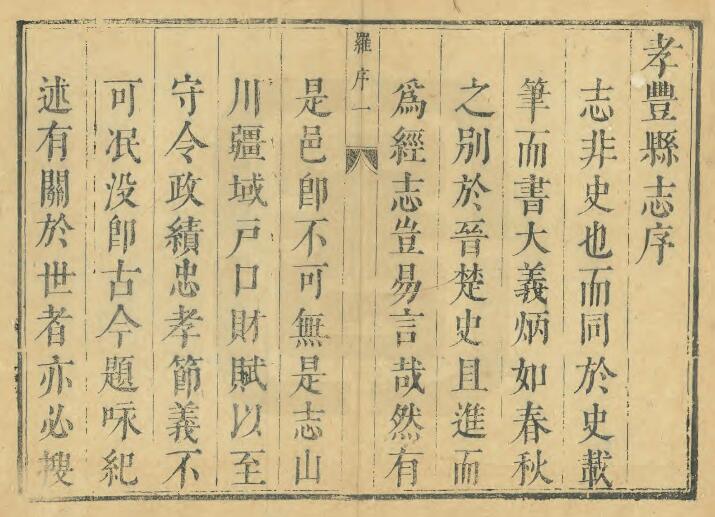 孝豐縣志序
志非史也而同於史載
筆而書大義炳如春秋
之別於晉楚史且進而
爲經志豈易言哉然有
羅序一
是邑卽不可無是志山
川疆域戸口財賦以至
守令政績忠孝節義不
可泯没卽古今題咏紀
述有關於世者亦必搜